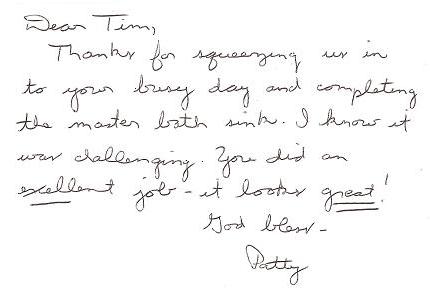 Dear Tim,
Thanks for squeezing us in
to your busy day and completing
the master bath sink. I know it
was challenging. You did an
excellent job - it looks great!
God bless -
Patty